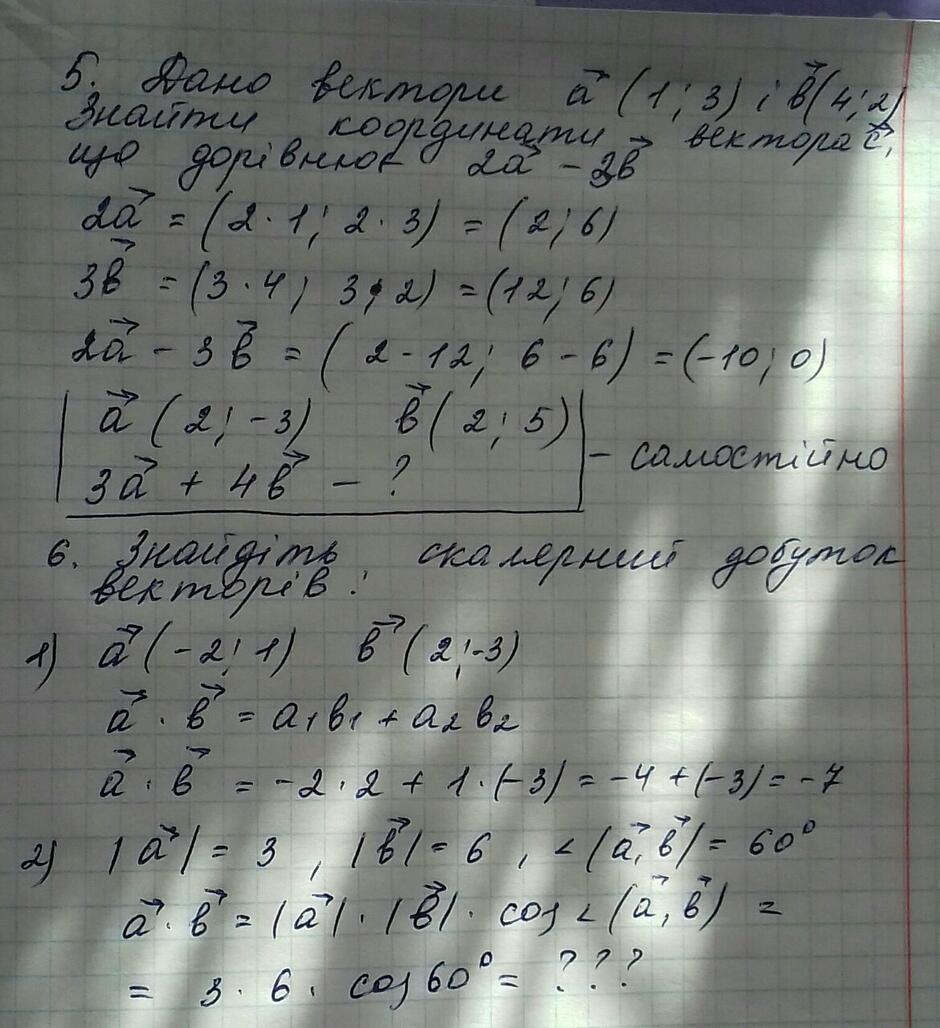 5. Дано вектори a⃗ (1; 3) і b⃗(4; 2)
Знайти координати вектора c⃗,
що дорівнює 2a⃗ - 3b⃗
2a⃗ = (2·1; 2·3) = (2; 6)
3b⃗ = (3·4; 3·2) = (12; 6)
2a⃗ - 3b⃗ = (2-12; 6-6) = (-10; 0)
a⃗ (2; -3) b⃗ (2; 5)
3a⃗ + 4b⃗ - ?
- самостійно
6. Знайдіть скалярний добуток
векторів:
1) a⃗ (-2; 1) b⃗ (2; -3)
a⃗ · b⃗ = a₁b₁ + a₂b₂
a⃗ · b⃗ = -2·2 + 1·(-3) = -4 + (-3) = -7
2) |a⃗| = 3, |b⃗| = 6, ∠(a⃗, b⃗) = 60°
a⃗ · b⃗ = |a⃗| · |b⃗| · cos ∠(a⃗, b⃗) =
= 3 · 6 · cos 60° = ???